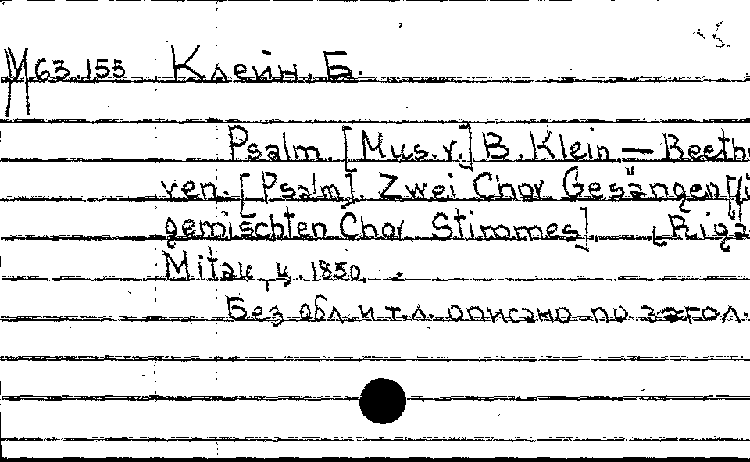 М63.155 Клейн, Б.
Psalm. [Mus.v.] B. Klein. — Beetho
ven. [Psalm]. Zwei Chor Gesängen [fü
gemischten Chor Stimmes]. [Riga
Mitau, ц. 1850.
Без обл. и т.л. описано по загол.